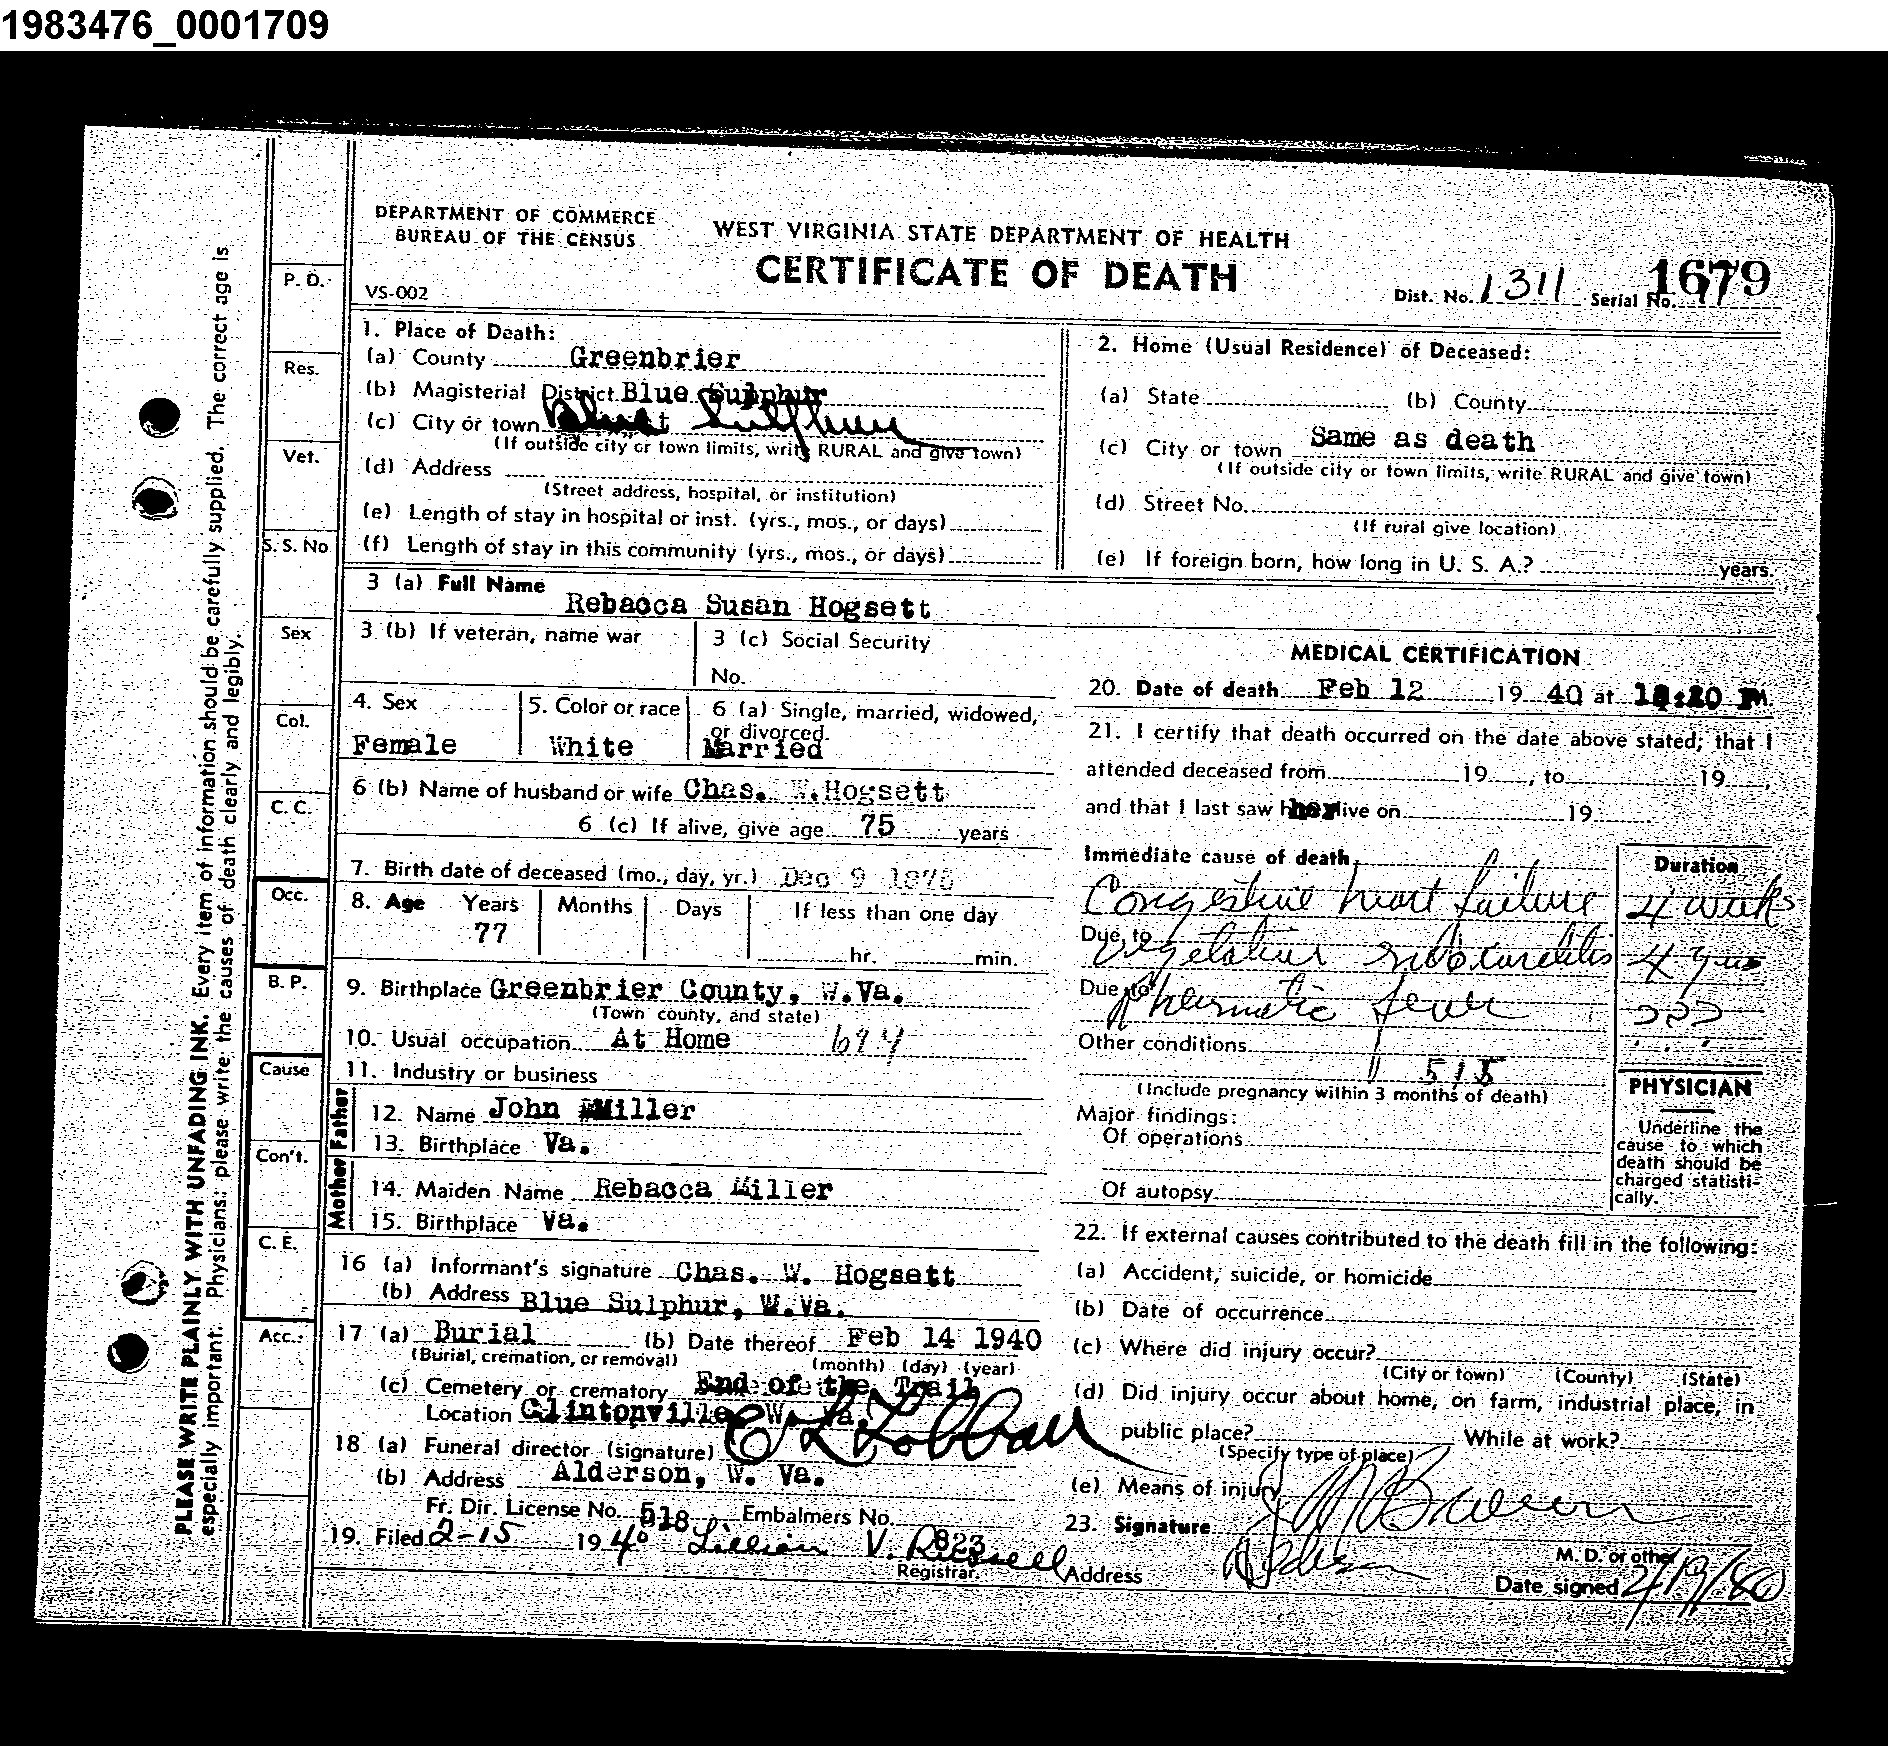 1983476_0001709
DEPARTMENT OF COMMERCE
BUREAU OF THE CENSUS
WEST VIRGINIA STATE DEPARTMENT OF HEALTH
CERTIFICATE OF DEATH
VS-002
Dist. No. 1311 Serial No. 1679
1. Place of Death:
(a) County Greenbrier
(b) Magisterial District Blue Sulphur
(c) City or town Blue Sulphur
(If outside city or town limits, write RURAL and give town)
(d) Address
(Street address, hospital, or institution)
(e) Length of stay in hospital or inst. (yrs., mos., or days)
(f) Length of stay in this community (yrs., mos., or days)
2. Home (Usual Residence) of Deceased:
(a) State (b) County
(c) City or town Same as death
(If outside city or town limits, write RURAL and give town)
(d) Street No.
(If rural give location)
(e) If foreign born, how long in U. S. A.? years.
3 (a) Full Name Rebacca Susan Hogsett
3 (b) If veteran, name war
3 (c) Social Security
No.
4. Sex
Female
5. Color or race
White
6 (a) Single, married, widowed,
or divorced.
Married
6 (b) Name of husband or wife Chas. W.Hogsett
6 (c) If alive, give age 75 years
7. Birth date of deceased (mo., day, yr.) Dec 9
8. Age Years Months Days If less than one day
77
hr. min.
9. Birthplace Greenbrier County, W.Va.
(Town county, and state)
10. Usual occupation At Home 694
11. Industry or business
Father
12. Name John Miller
13. Birthplace Va.
Mother
14. Maiden Name Rebacca Miller
15. Birthplace Va.
16 (a) Informant's signature Chas. W. Hogsett
(b) Address Blue Sulphur, W.Va.
17 (a) Burial (b) Date thereof Feb 14 1940
(Burial, cremation, or removal) (month) (day) (year)
(c) Cemetery or crematory End of the Trail
Location Clintonville W. Va.
18 (a) Funeral director (signature) E L Lobban
(b) Address Alderson, W. Va.
Fr. Dir. License No. 518 Embalmers No. 823
19. Filed 2-15 1940 Lillian V. Russell
Registrar.
MEDICAL CERTIFICATION
20. Date of death Feb 12 19 40 at
21. I certify that death occurred on the date above stated; that I
attended deceased from 19 , to 19 ,
and that I last saw her alive on 19
Immediate cause of death Duration
Congestive heart failure 4 weeks
Due to Vegetative endocarditis 4 yrs
Due to Rheumatic fever ???
Other conditions
515
(Include pregnancy within 3 months of death)
Major findings:
Of operations
Of autopsy
PHYSICIAN
Underline the
cause to which
death should be
charged statisti-
cally.
22. If external causes contributed to the death fill in the following:
(a) Accident, suicide, or homicide
(b) Date of occurrence
(c) Where did injury occur?
(City or town) (County) (State)
(d) Did injury occur about home, on farm, industrial place, in
public place? While at work?
(Specify type of place)
(e) Means of injury
23. Signature
M. D. or other
Address Alderson Date signed
P. D.
Res.
Vet.
S. S. No
Sex
Col.
C. C.
Occ.
B. P.
Cause
Con't.
C. E.
Acc.:
PLEASE WRITE PLAINLY WITH UNFADING INK. Every item of information should be carefully supplied. The correct age is
especially important. Physicians: please write the causes of death clearly and legibly.